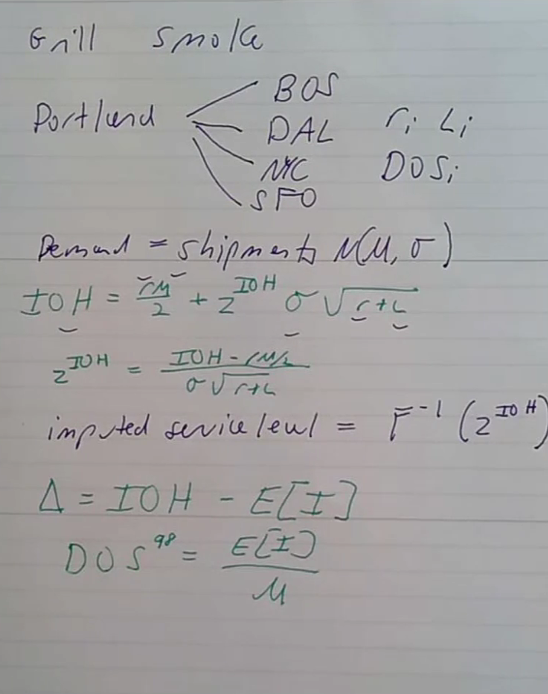 Grill Smoke
BOS
Portland DAL ri Li
NYC DOSi
SFO
Demand = shipments N(μ, σ)
IOH = rμ/2 + z^IOH σ √(r+L)
z^IOH = (IOH - rμ/2) / (σ√(r+L))
imputed service level = F^-1 (z^IOH)
Δ = IOH - E[I]
DOS^98 = E[I] / μ